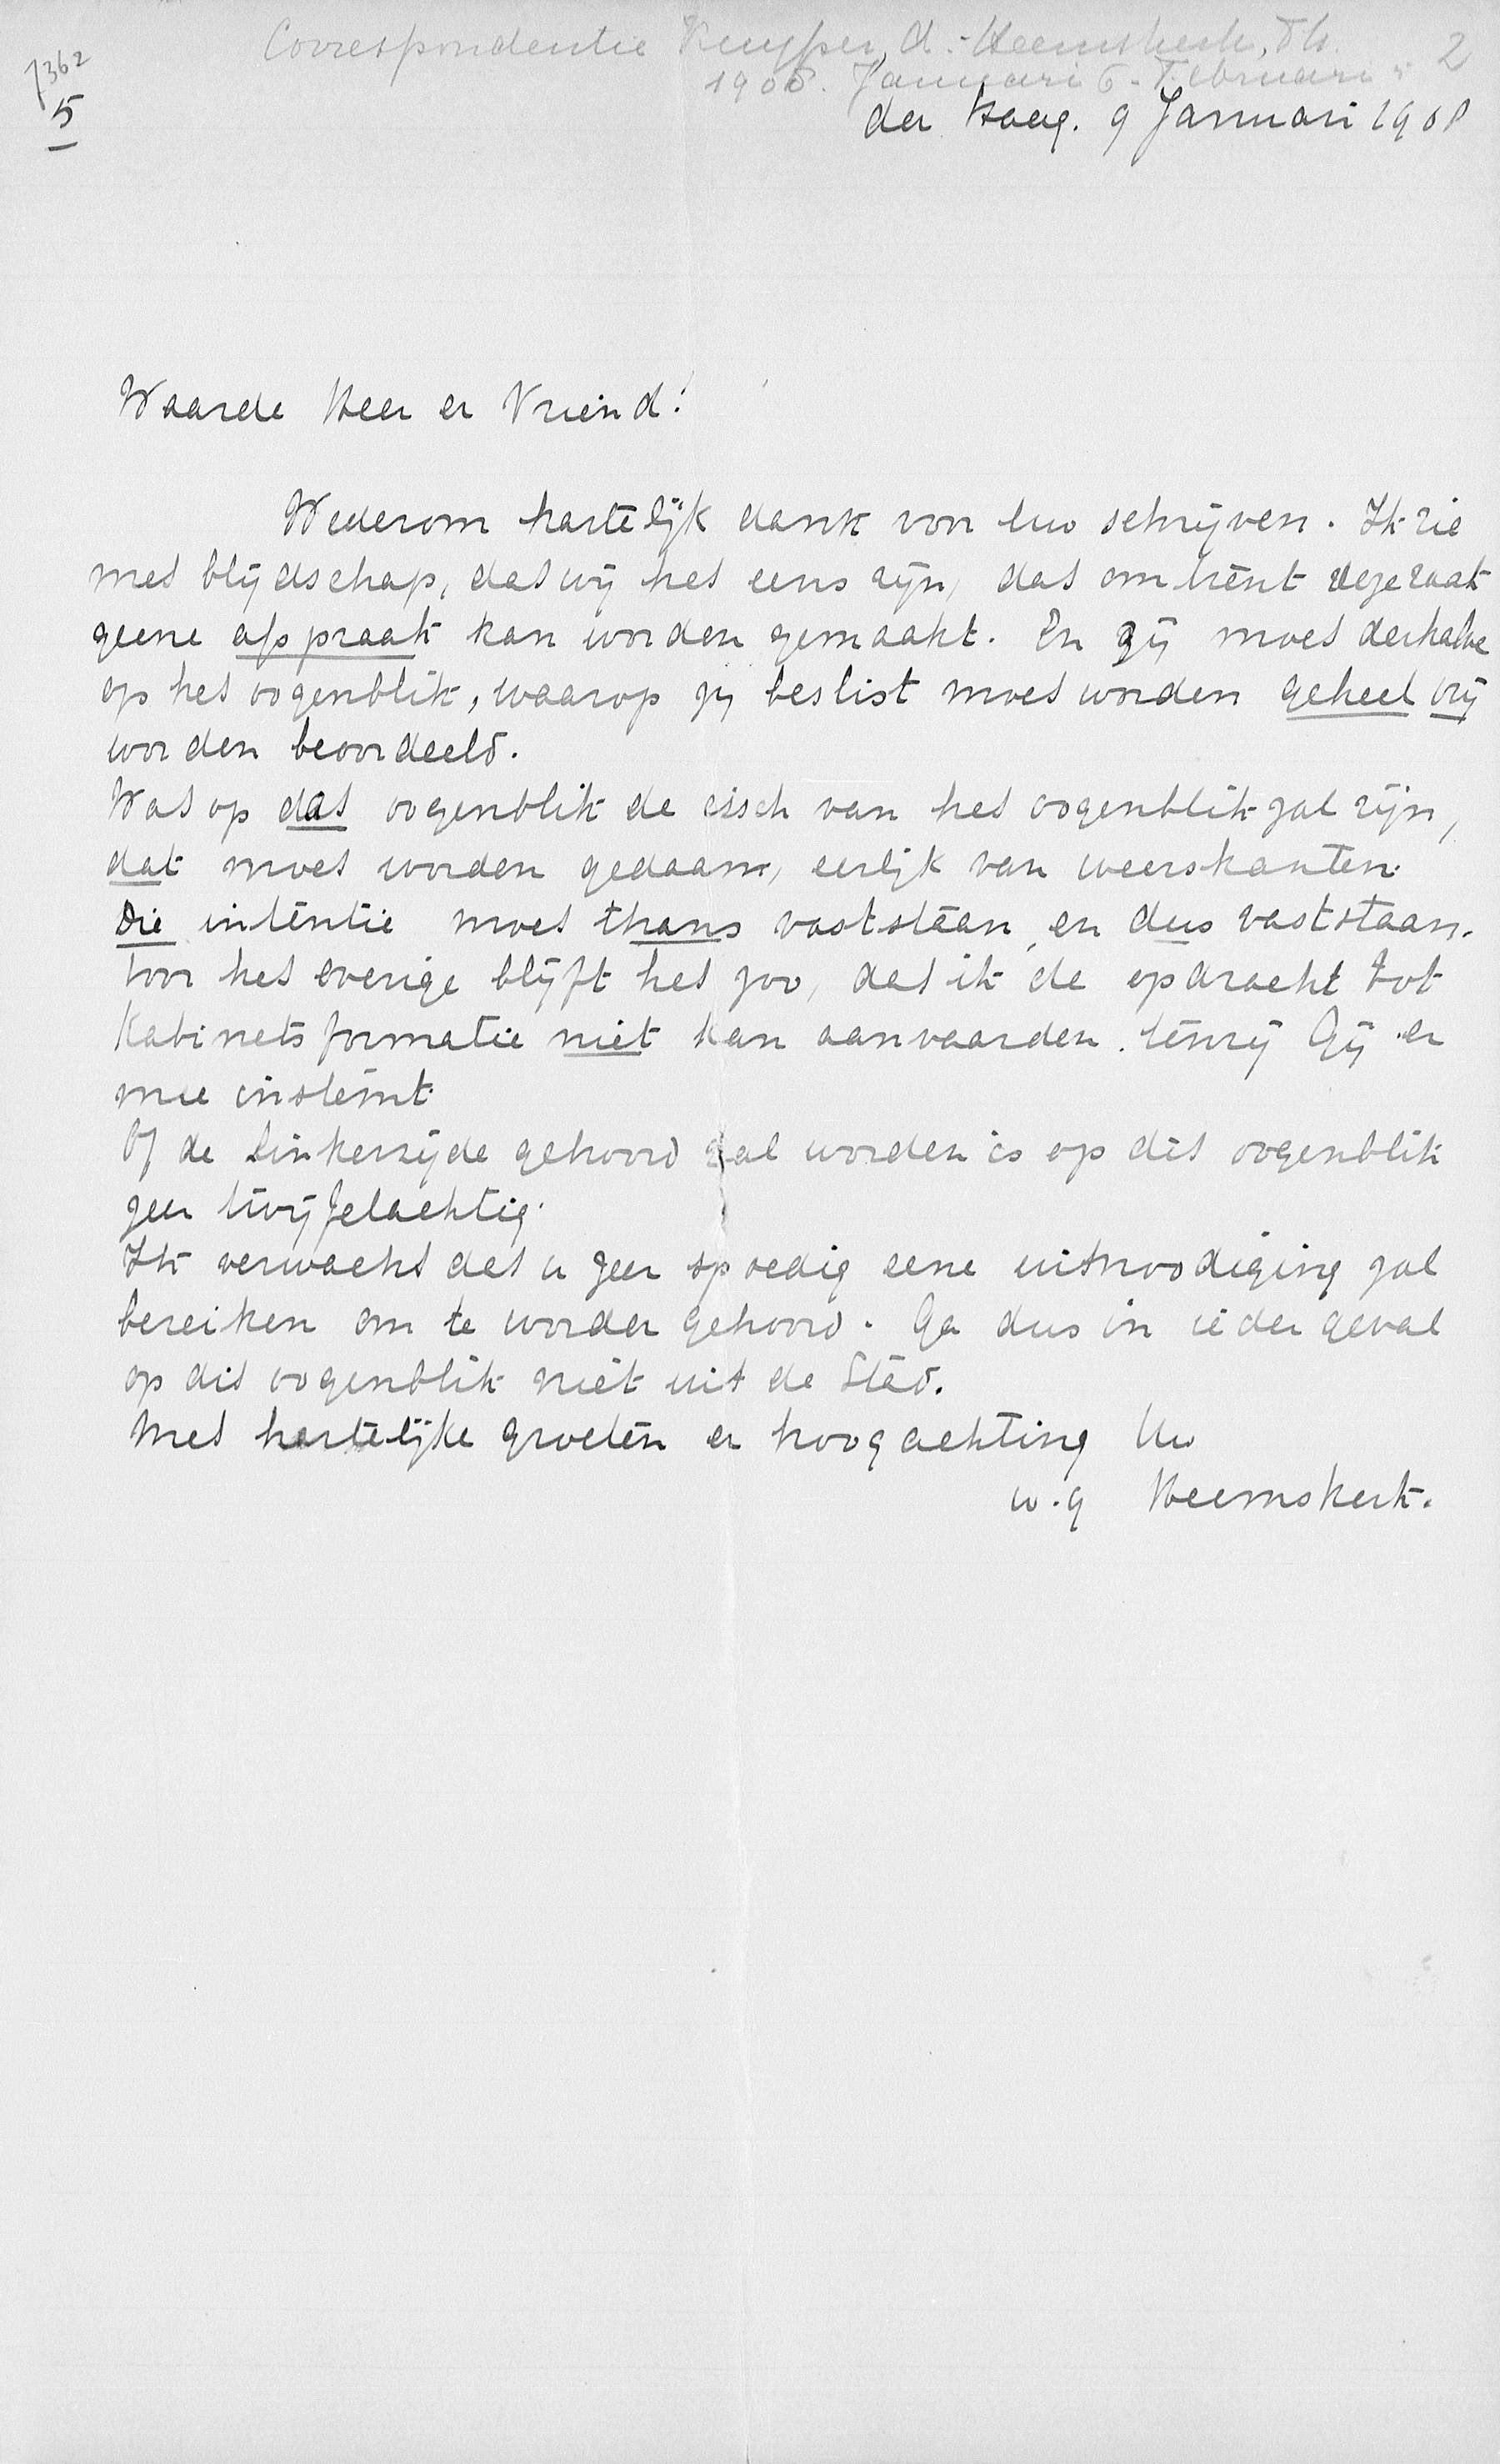 Correspondentie Kuyper, A. - Heemskerk, Th.
1908. Januari 6 - Februari 5
2
7362
5
den Haag. 9 Januari 1908
Waarde Heer en Vriend!
Wederom hartelijk dank voor Uw schrijven. Ik zie
met blijdschap, dat wij het eens zijn, dat omtrent deze zaak
geene afspraak kan worden gemaakt. En zij moet derhalve
op het oogenblik, waarop zij beslist moet worden geheel vrij
worden beoordeeld.
Wat op dat oogenblik de eisch van het oogenblik zal zijn,
dat moet worden gedaan, eerlijk van weerskanten.
Die intentie moet thans vaststaan, en dus vaststaan.
Voor het overige blijft het zoo, dat ik de opdracht tot
Kabinetsformatie niet kan aanvaarden. tenzij Gij er
mee instemt.
Of de Linkerzijde gehoord zal worden is op dit oogenblik
zeer twijfelachtig.
Ik verwacht dat u zeer spoedig eene uitnoodiging zal
bereiken om te worden gehoord. Ga dus in ieder geval
op dit oogenblik niet uit de Stad.
Met hartelijke groeten en hoogachting Uw
w.g Heemskerk.